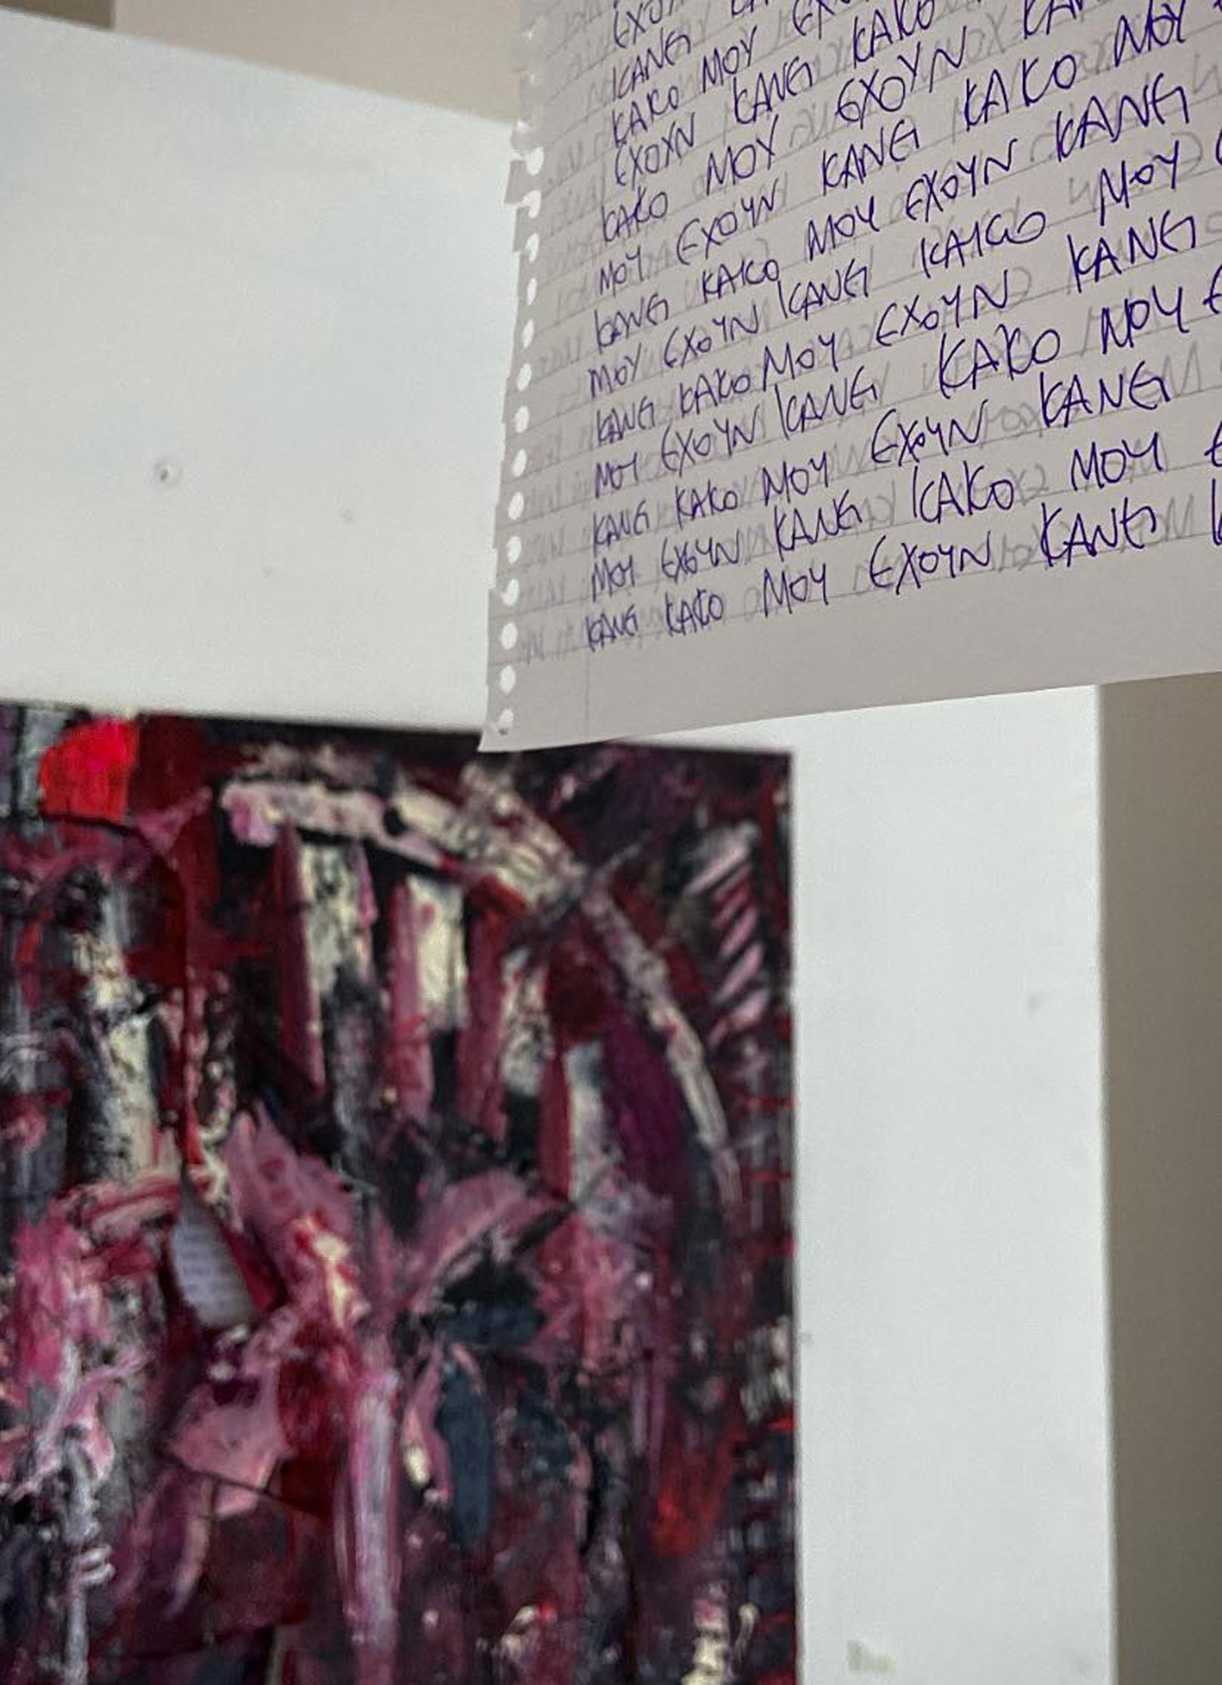 ΕΧΟΥ
ΚΑΝΕΙ
ΚΑΚΟ ΜΟΥ ΕΧΟ
ΕΧΟΥΝ ΚΑΝΕΙ ΚΑΚΟ
ΚΑΚΟ ΜΟΥ ΕΧΟΥΝ ΚΑΝ
ΜΟΥ ΕΧΟΥΝ ΚΑΝΕΙ ΚΑΚΟ ΜΟΥ
ΚΑΝΕΙ ΚΑΚΟ ΜΟΥ ΕΧΟΥΝ ΚΑΝΕΙ
ΜΟΥ ΕΧΟΥΝ ΚΑΝΕΙ ΚΑΚΟ ΜΟΥ Ε
ΚΑΝΕΙ ΚΑΚΟ ΜΟΥ ΕΧΟΥΝ ΚΑΝΕΙ
ΜΟΥ ΕΧΟΥΝ ΚΑΝΕΙ ΚΑΚΟ ΜΟΥ Ε
ΚΑΝΕΙ ΚΑΚΟ ΜΟΥ ΕΧΟΥΝ ΚΑΝΕΙ
ΜΟΥ ΕΧΟΥΝ ΚΑΝΕΙ ΚΑΚΟ ΜΟΥ Ε
ΚΑΝΕΙ ΚΑΚΟ ΜΟΥ ΕΧΟΥΝ ΚΑΝΕΙ Κ